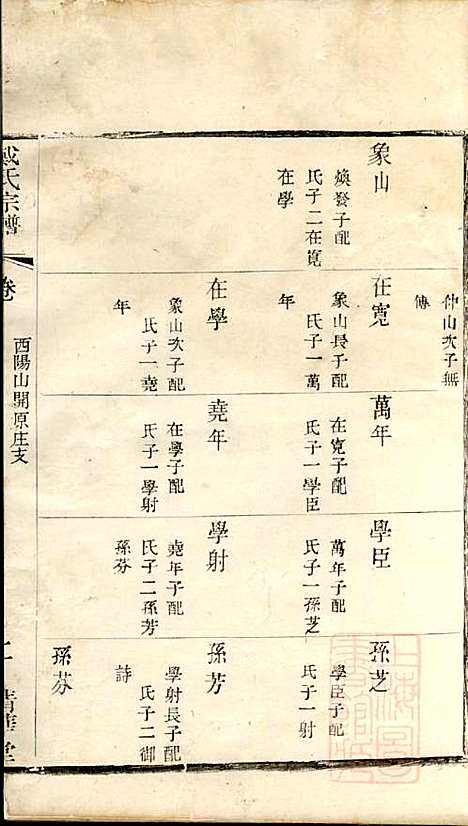 象山
煥發子配
氏子二在寬
在學
仲山次子無
傳
在寬
象山長子配
氏子一萬
年
在學
象山次子配
氏子一堯
年
萬年
在寬子配
氏子一學臣
堯年
在學子配
氏子一學射
學臣
萬年子配
氏子一孫芝
學射
堯年子配
氏子二孫芳
孫芬
孫芝
學臣子配
氏子一射
孫芳
學射長子配
氏子二御
詩
孫芬
戴氏宗譜
卷
酉陽山開原庄支
清華堂